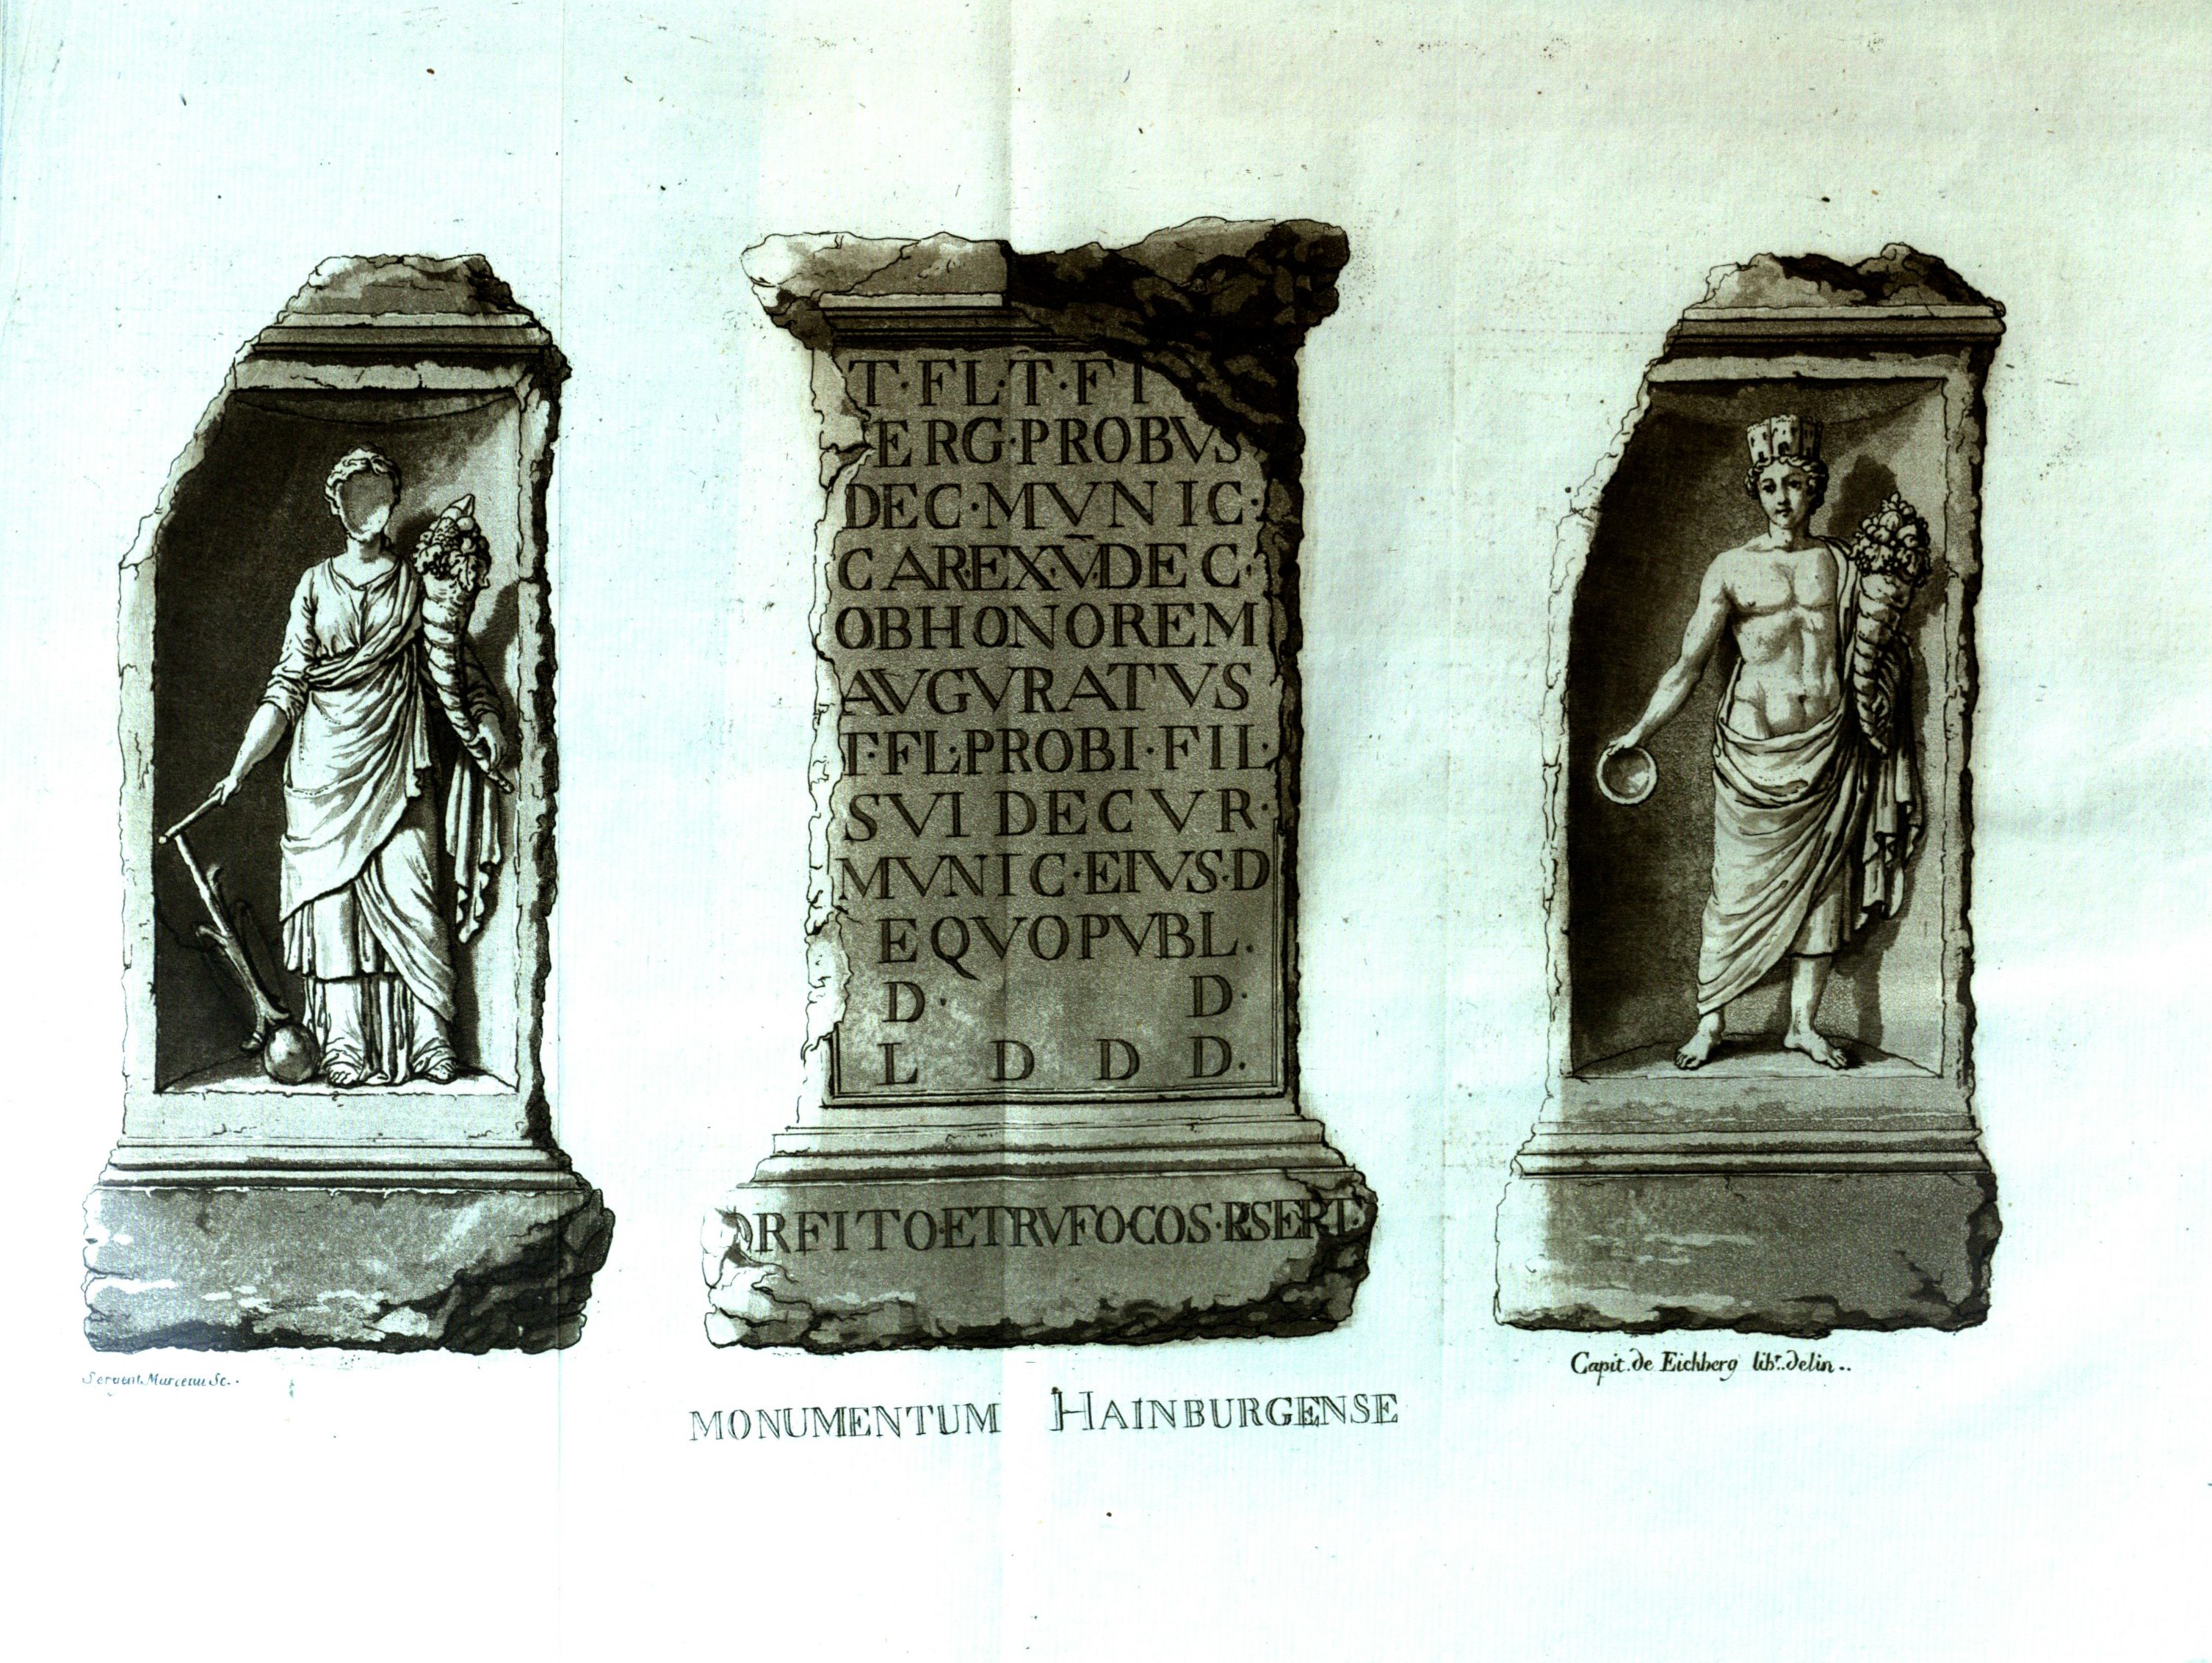 T·FL·T·FI
ERG·PROBVS
DEC·MVNIC·
CAR·EX·V̄·DEC·
OBHONOREM
AVGVRATVS
T·FL·PROBI·FIL·
SVI DECVR·
MVNIC·EIVS·D
EQVOPVBL.
D· D·
L D D D.
ORFITO·ET·RVFO·COS·
Sergent Marceau Sc..
Capit. de Eichberg libr. delin..
MONUMENTUM HAINBURGENSE